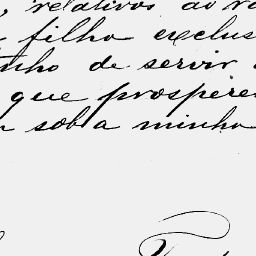 , relativos ao
filho exclus
nho de servir
que prospere
sob a minha